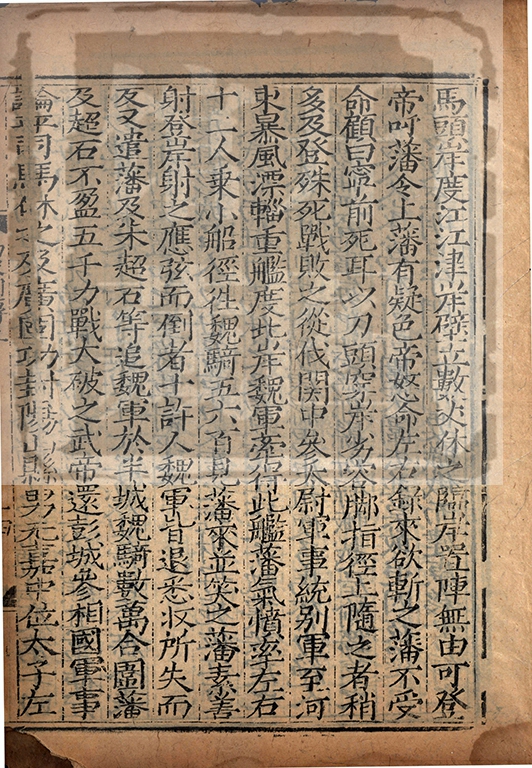 馬頭岸度江江津岸壁立數丈休之臨岸置陣無由可登
帝呼藩令上藩有疑色帝怒命左右錄來欲斬之藩不受
命顧曰寧前死耳以刀頭穿岸劣容脚指徑上隨之者稍
多及登殊死戰敗之從伐関中參太尉軍事統別軍至河
東暴風漂輜重艦度北岸魏軍牽得此艦藩氣憤率左右
十二人乘小船徑往魏騎五六百見藩來並笑之藩素善
射登岸射之應弦而倒者十許人魏軍皆退悉收所失而
反又遣藩及朱超石等追魏軍於半城魏騎數萬合圍藩
及超石不盈五千力戰大破之武帝還彭城參相國軍事
論平司馬休之及廣固功封陽山縣男元嘉中位太子左